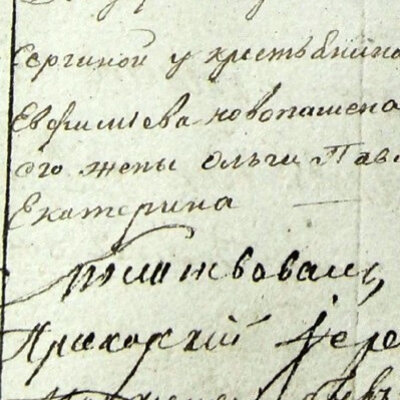 Сергиной у крестьянина
Евфимиева новопашена
его жены Ольги Пав
Екатерина
Молитвовалъ
Приходский Iере